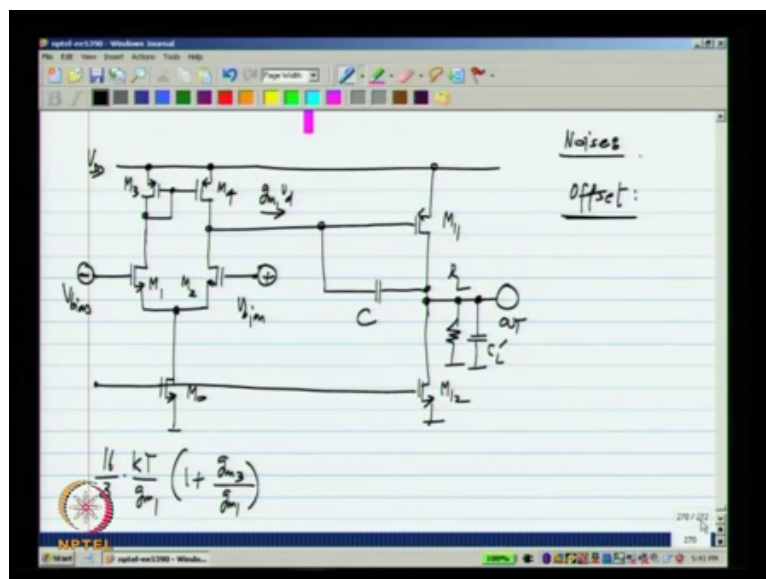 nptel-ee5390 - Windows Journal
File Edit View Insert Actions Tools Help
Page Width
B I
Noise:
Offset:
V
M3
M4
gm1 vd
M11
M1
M2
Vbias
C
RL
CL'
OUT
M0
M12
16/3 · kT/gm1 (1 + gm3/gm1)
NPTEL
270 / 272
270
Start
nptel-ee5390 - Windo...
100%
5:41 PM